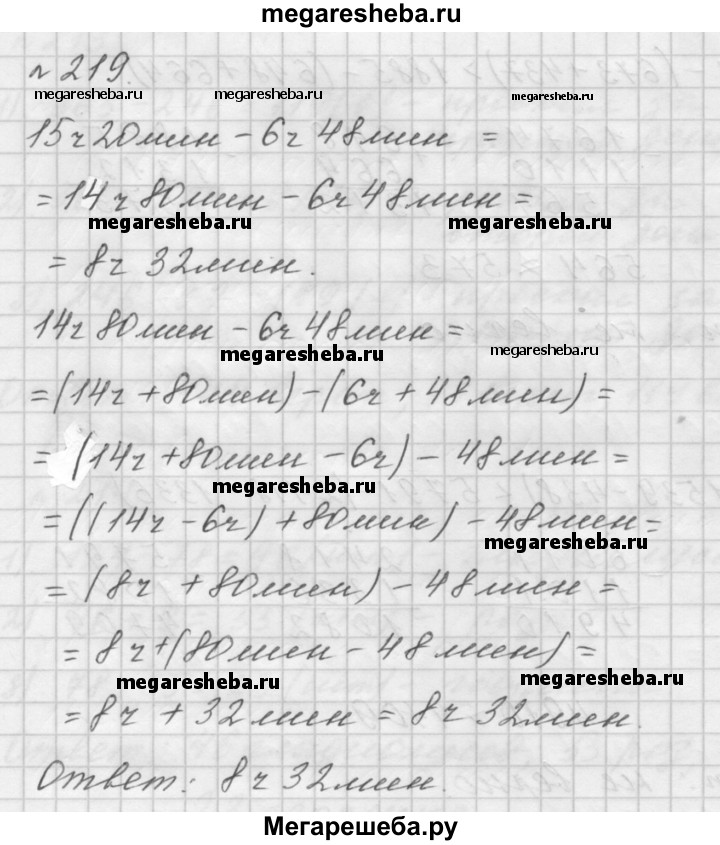 megaresheba.ru
№219.
megaresheba.ru megaresheba.ru megaresheba.ru
15ч 20мин – 6ч 48мин =
= 14ч 80мин – 6ч 48мин =
megaresheba.ru megaresheba.ru
= 8ч 32мин.
14ч 80мин – 6ч 48мин =
megaresheba.ru megaresheba.ru
= (14ч + 80мин) – (6ч + 48мин) =
= (14ч + 80мин – 6ч) – 48мин =
megaresheba.ru
= ((14ч – 6ч) + 80мин) – 48мин =
megaresheba.ru
= (8ч + 80мин) – 48мин =
= 8ч + (80мин – 48мин) =
megaresheba.ru megaresheba.ru
= 8ч + 32мин = 8ч 32мин.
Ответ: 8ч 32мин.
Мегарешеба.ру